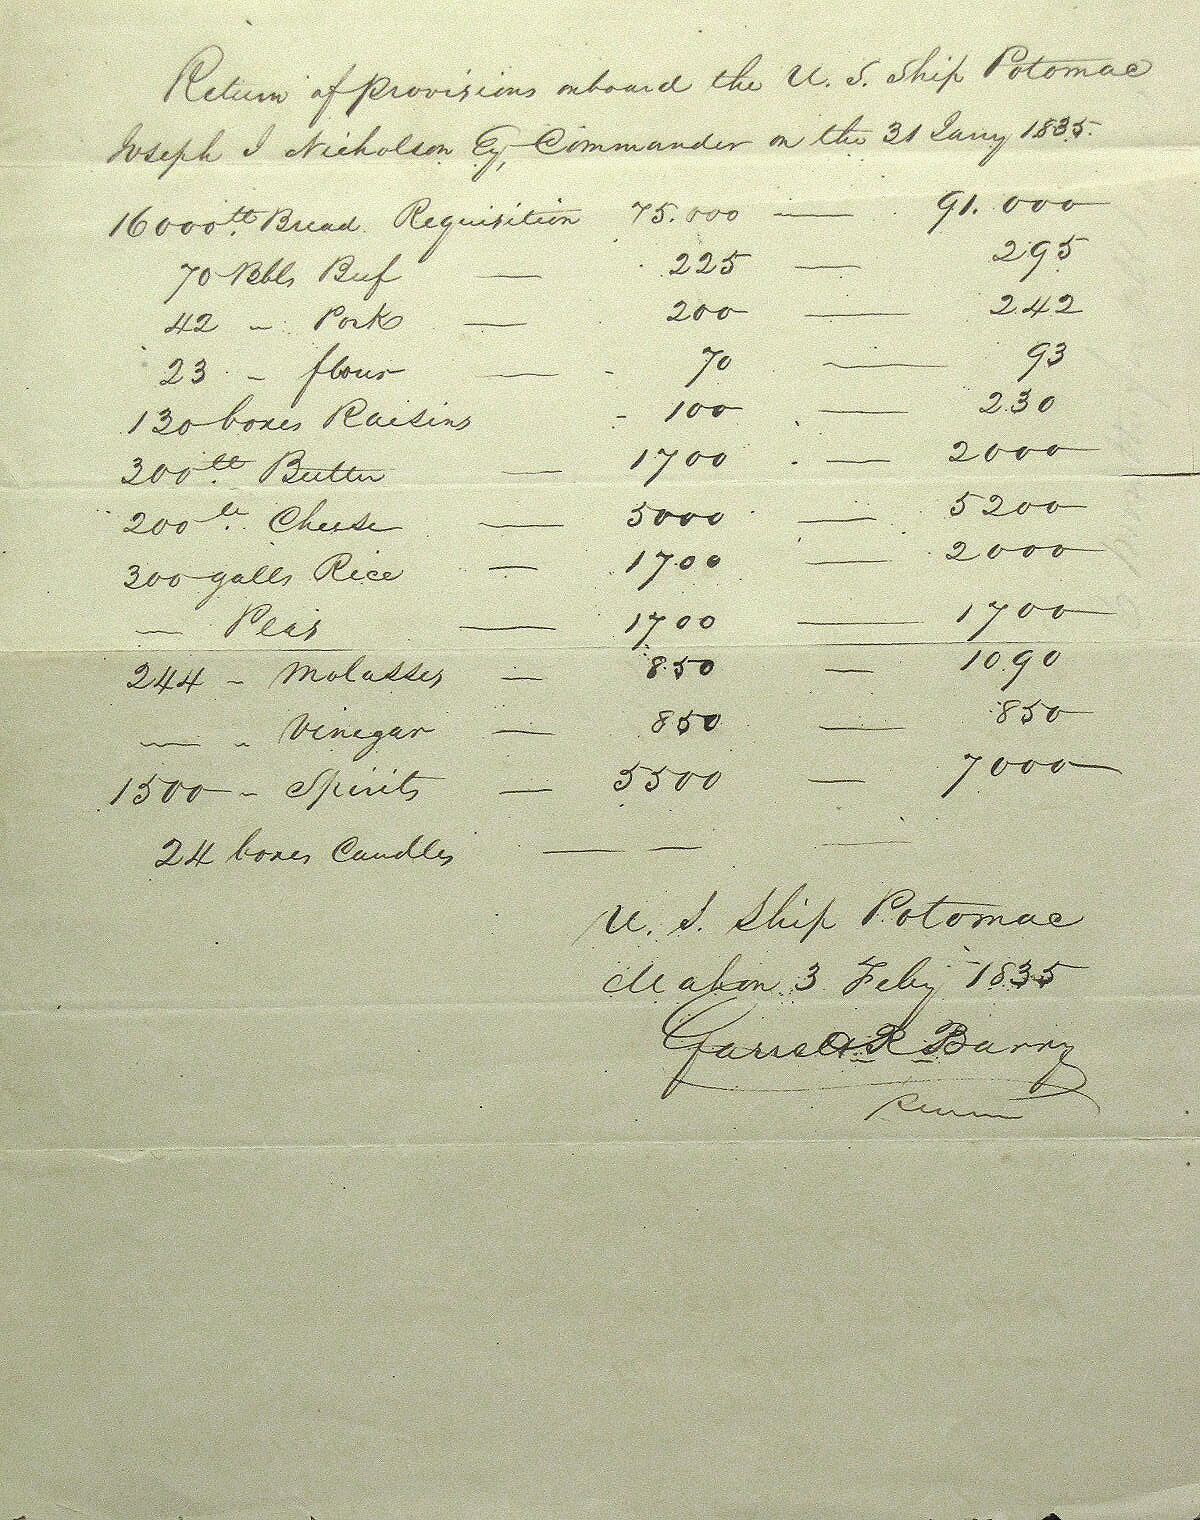 Return of provisions onboard the U. S. Ship Potomac
Joseph J Nicholson Esq, Commander on the 31 Jany 1835.
16000 lb. Bread Requisition 75.000 — 91.000
70 Bbls Beef — 225 — 295
42 " Pork — 200 — 242
23 " flour — 70 — 93
130 boxes Raisins - 100 — 230
300 lb. Butter — 1700 — 2000
200 lb. Cheese — 5000 — 5200
300 galls Rice — 1700 — 2000
— Peas — 1700 — 1700
244 " Molasses — 850 — 1090
— " Vinegar — 850 — 850
1500 " Spirits — 5500 — 7000
24 boxes Candles — — —
U. S. Ship Potomac
Mahon 3 Feby 1835
Garret R Barry